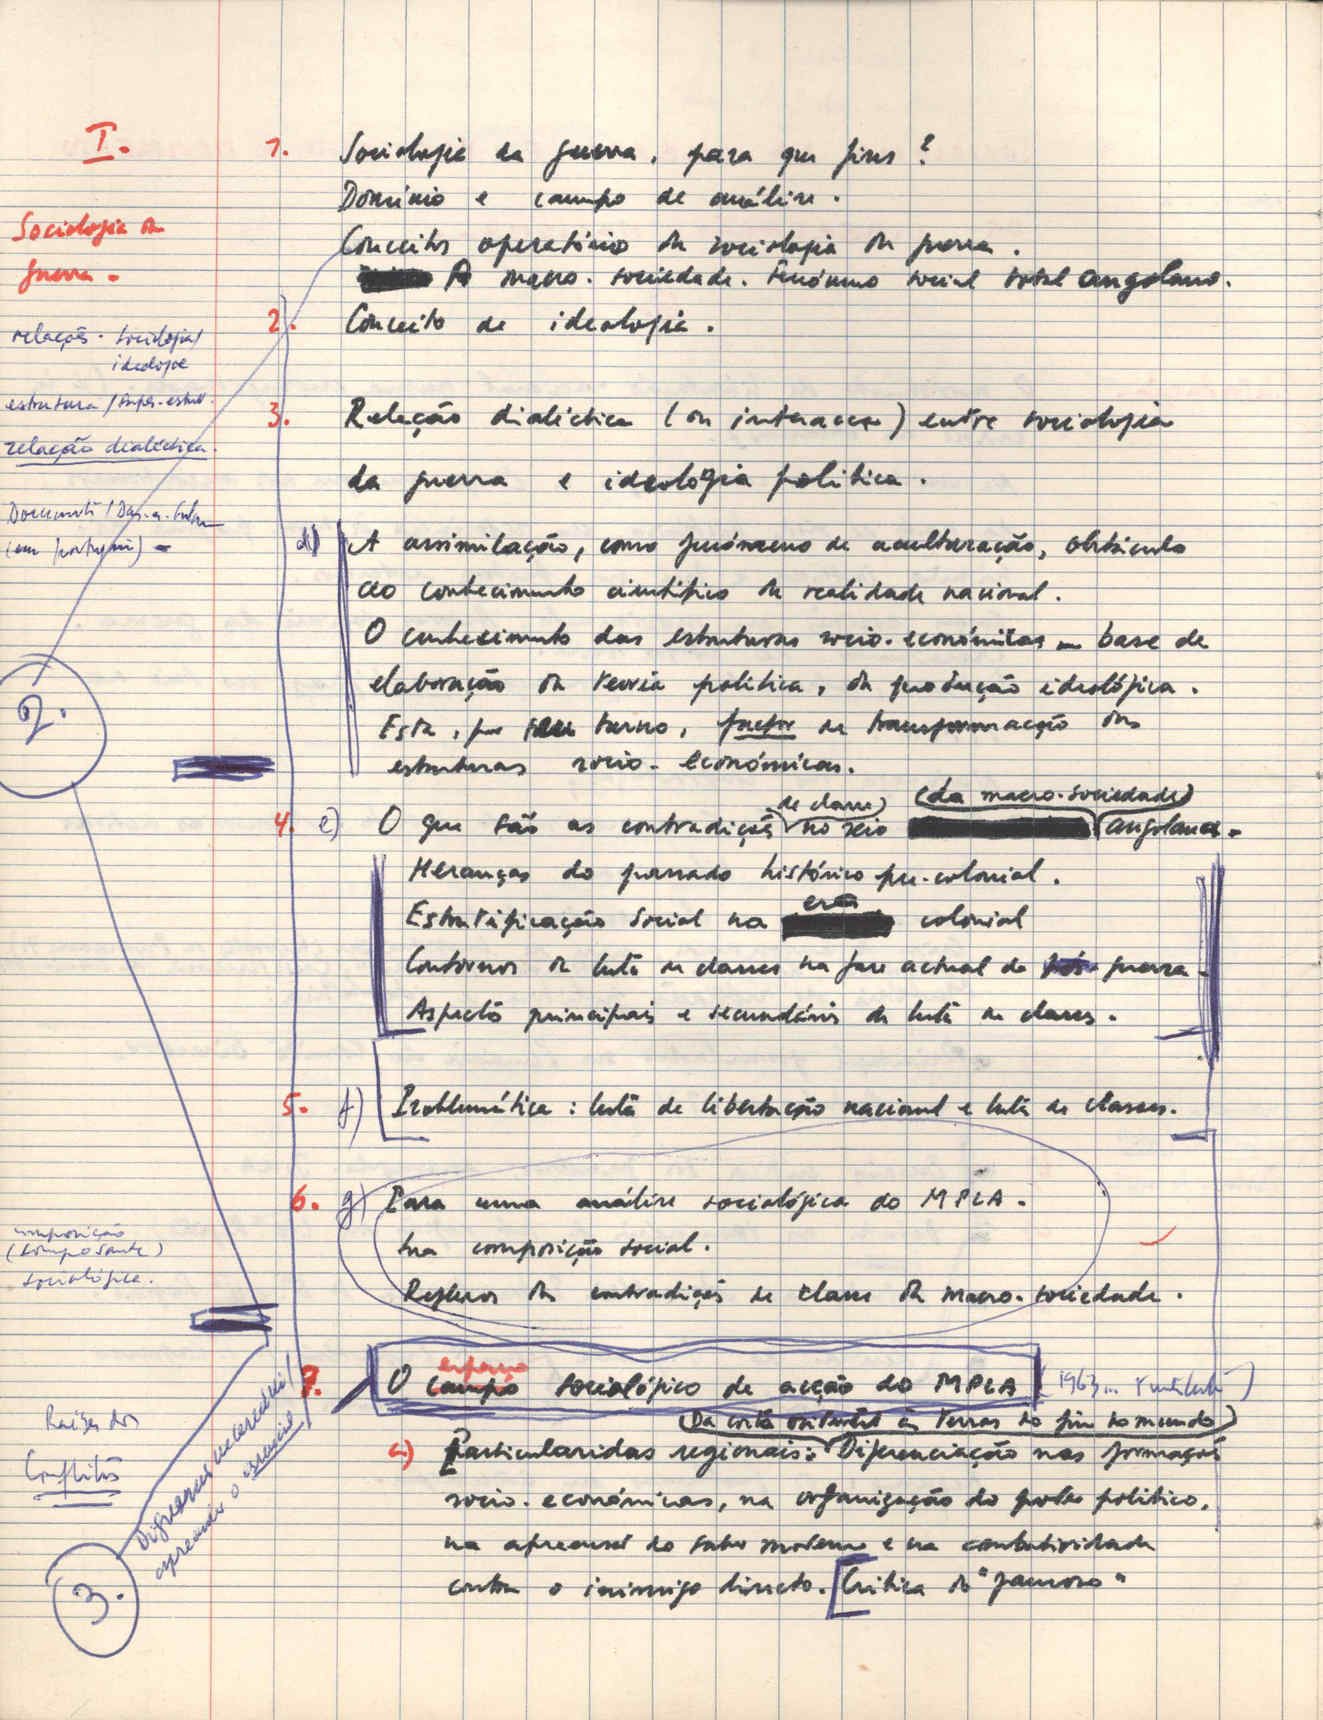 I.
Sociologia da
guerra -
relações - sociologia/
ideologia
estrutura / super-estrut.
relação dialéctica.
(em português) -
2.
composição
(composante)
sociológica.
Raízes dos
Conflitos
3.
apreender o essencial
1. Sociologia da guerra, para que fins?
Domínio e campo de análise.
Conceitos operatórios da sociologia da guerra.
A macro-sociedade. Fenómeno social total angolano.
2. Conceito de ideologia.
3. Relação dialéctica (ou interacção) entre sociologia
da guerra e ideologia politica.
d) A assimilação, como fenómeno de aculturação, obstáculo
ao conhecimento científico da realidade nacional.
O conhecimento das estruturas socio-económicas - base de
elaboração da teoria politica, da produção ideológica.
Esta, por seu turno, factor de transformação das
estruturas socio-económicas.
de classe (da macro-sociedade)
4. e) O que são as contradições no seio angolana.
Heranças do passado histórico pre-colonial.
era
Estratificação social na colonial
Contornos da luta de classes na fase actual de guerra -
Aspectos principais e secundários da luta de classes.
5. f) Problemática: luta de libertação nacional e luta de classes.
6. g) Para uma análise sociológica do MPLA.
Sua composição social.
Reflexos das contradições de classe da macro-sociedade.
7. O campo sociológico de acção do MPLA (1963...
(Da costa ocidental às Terras do fim do mundo)
a) Particularidades regionais: Diferenciação nas formações
socio-económicas, na organização do poder politico,
na apreensão do saber moderno e na combatividade
contra o inimigo directo. [Crítica do "